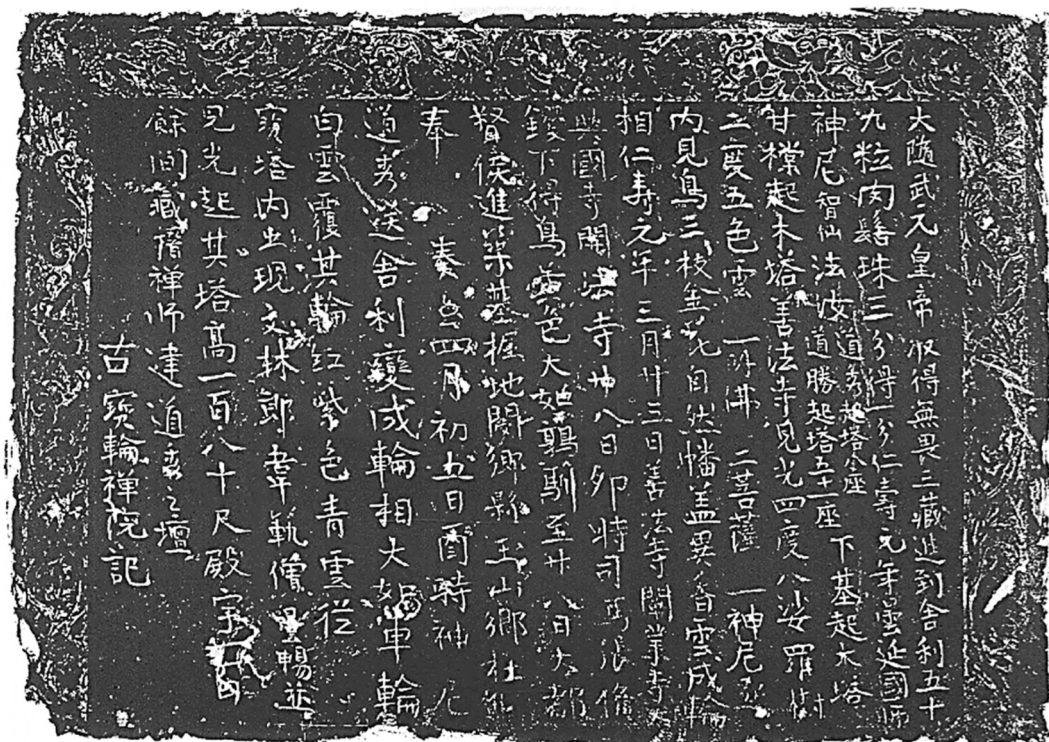 大隨武元皇帝収得無畏三藏進到舍利五十
九粒肉髻珠三分得一分仁壽元年曇延國师
神尼智仙法汝道秀起塔叁座道勝起塔五十一座下基起大塔
甘棠起木塔善法寺見光四度八娑羅樹
二度五色雲 一卧佛 二菩薩 一神尼
内見鳥三枝金花自然幡盖異香雲成輪
相仁寿元年三月廿三日善法寺闡業寺大
興國寺闡法寺廿八日卯時司馬張俻
鍬下得鳥黄色大如鶉馴至廿八日大都
督侯進築基掘地閿鄉縣玉山鄉杜
奉 奏至四月初五日酉時神尼
道秀送舍利變成輪相大如車輪
白雲覆其輪紅紫色青雲從
寳塔内出現文林郎韋範僧曇暢並
見光起其塔高一百八十尺殿宇一百
餘間藏僧禪师建道秀之壇
古寳輪禪院記